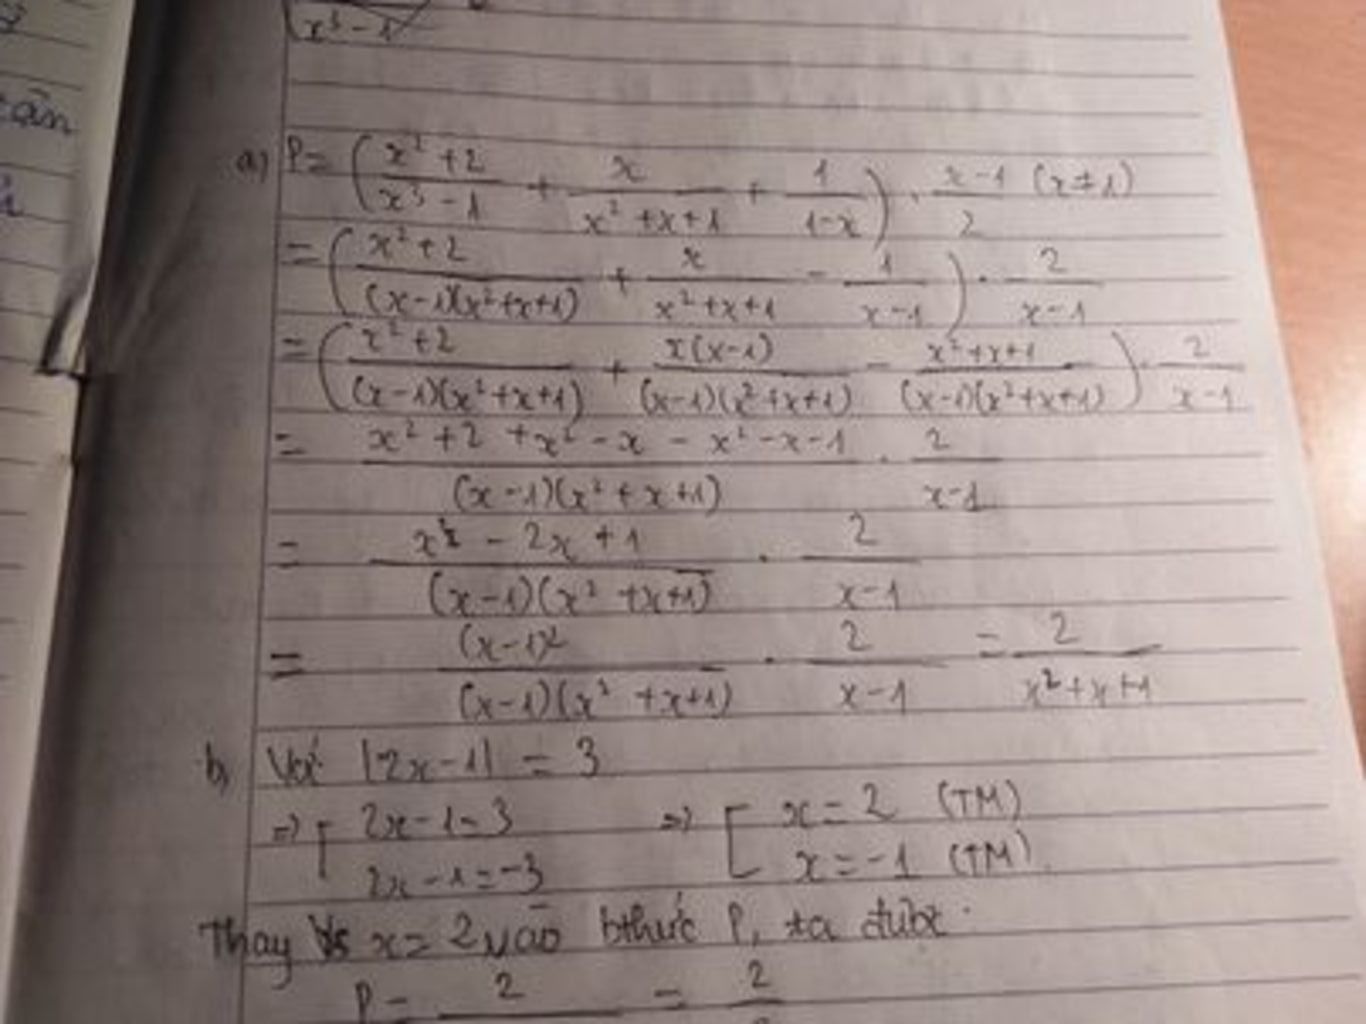 x³ - 1
tận
a) P = ( (x² + 2)/(x³ - 1) + x/(x² + x + 1) + 1/(1 - x) ) . (x - 1)/2 (x ≠ 1)
= ( (x² + 2)/((x - 1)(x² + x + 1)) + x/(x² + x + 1) - 1/(x - 1) ) . 2/(x - 1)
= ( (x² + 2)/((x - 1)(x² + x + 1)) + x(x - 1)/((x - 1)(x² + x + 1)) - (x² + x + 1)/((x - 1)(x² + x + 1)) ) . 2/(x - 1)
= (x² + 2 + x² - x - x² - x - 1)/((x - 1)(x² + x + 1)) . 2/(x - 1)
= (x² - 2x + 1)/((x - 1)(x² + x + 1)) . 2/(x - 1)
= (x - 1)²/((x - 1)(x² + x + 1)) . 2/(x - 1) = 2/(x² + x + 1)
b) Với |2x - 1| = 3
=> [ 2x - 1 = 3 => [ x = 2 (TM)
2x - 1 = -3 x = -1 (TM)
Thay x = 2 vào bthức P, ta được:
P = 2 = 2